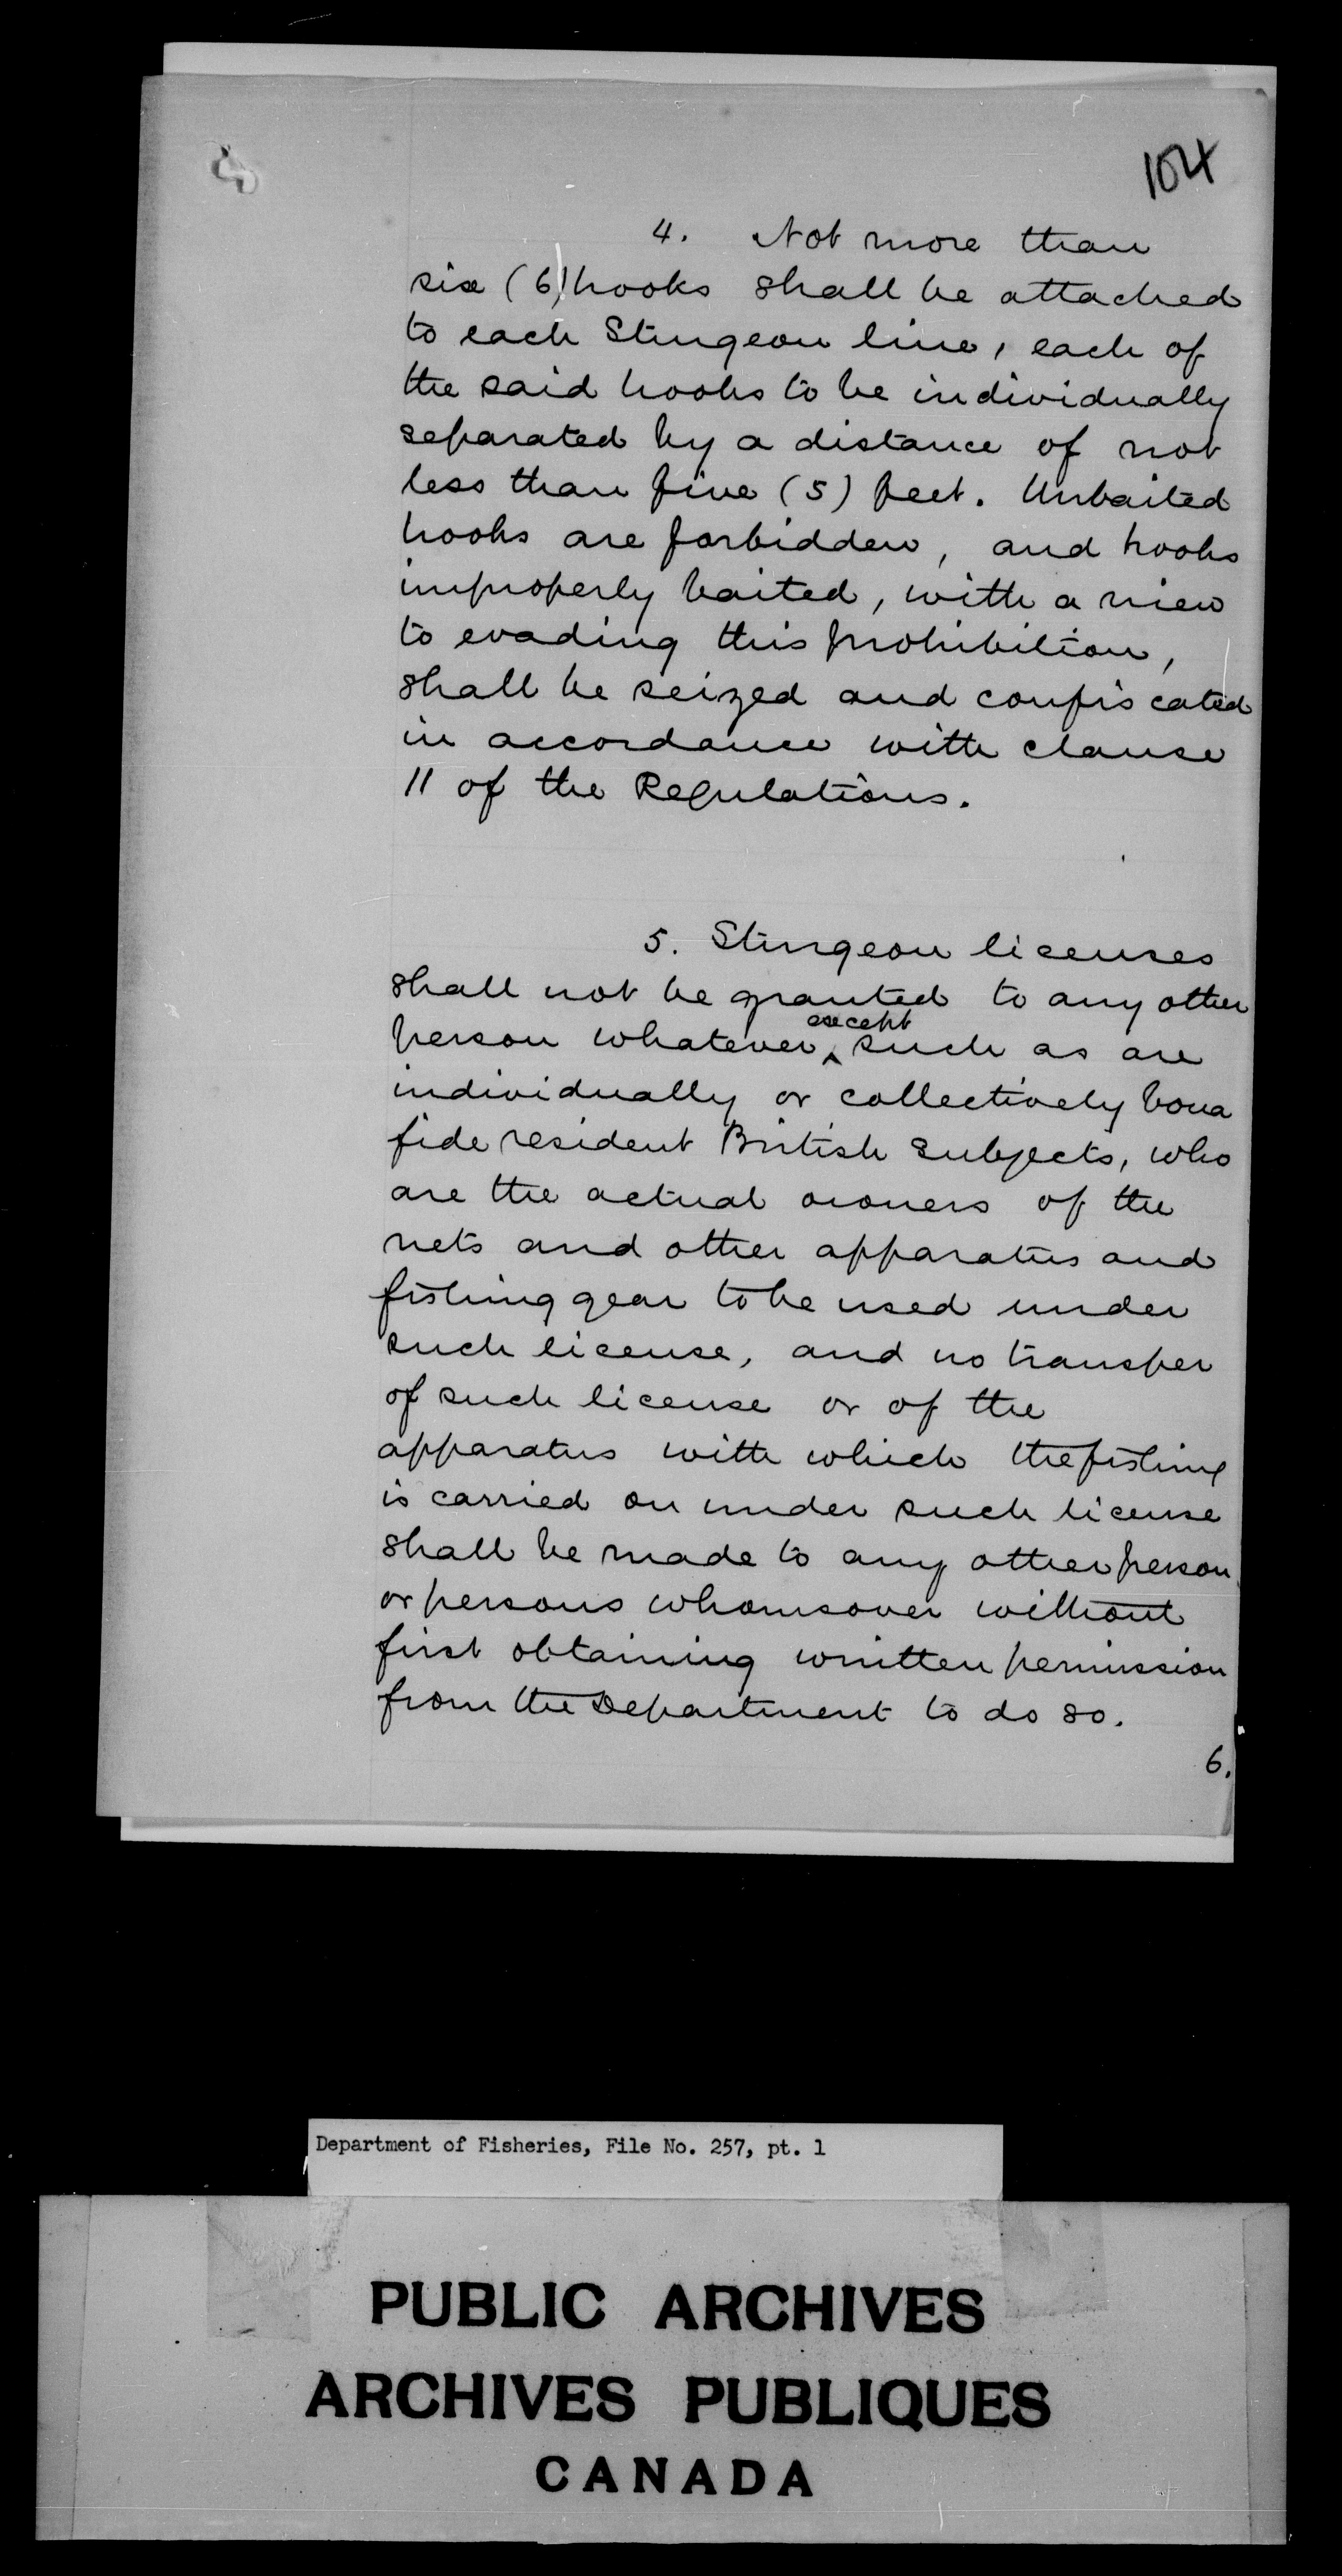 104
4. Not more than
six (6) hooks shall be attached
to each Sturgeon line, each of
the said hooks to be individually
separated by a distance of not
less than five (5) feet. Unbaited
hooks are forbidden, and hooks
improperly baited, with a view
to evading this prohibition,
shall be seized and confiscated
in accordance with clause
11 of the Regulations.
5. Sturgeon licenses
shall not be granted to any other
person whatever ^except such as are
individually or collectively bona
fide resident British subjects, who
are the actual owners of the
nets and other apparatus and
fishing gear to be used under
such license, and no transfer
of such license or of the
apparatus with which the fishing
is carried on under such license
shall be made to any other person
or persons whomsover without
first obtaining written permission
from the Department to do so.
6.
Department of Fisheries, File No. 257, pt. 1
PUBLIC ARCHIVES
ARCHIVES PUBLIQUES
CANADA